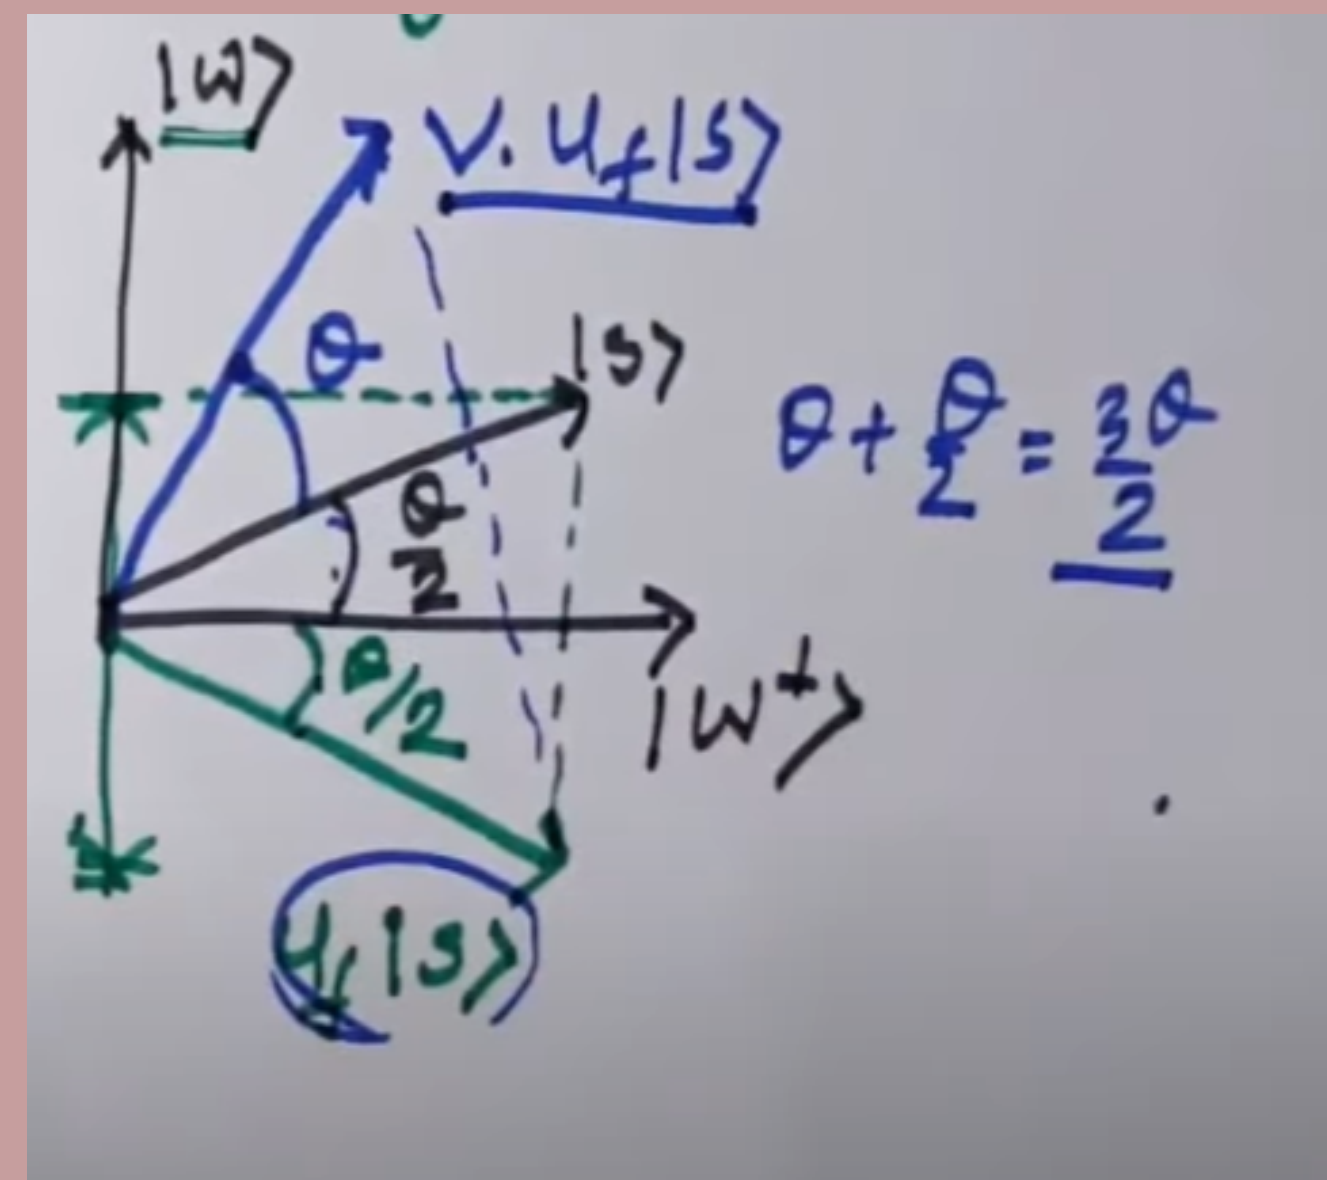 |w⟩
V. U_f|s⟩
θ
|s⟩
θ + θ/2 = 3θ/2
θ/2
θ/2
|w⊥⟩
U_f|s⟩